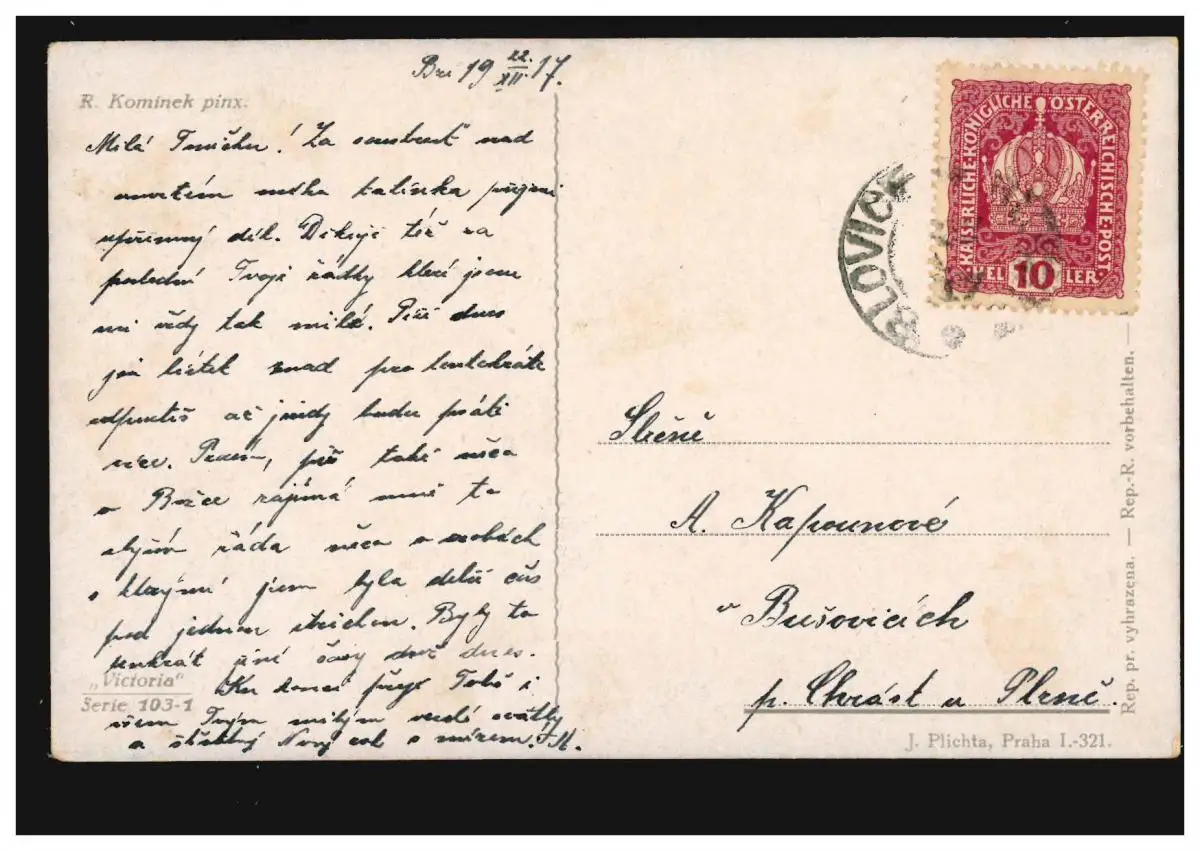 19 22./XII. 17.
R. Kominek pinx.
Milá! Za soustrast nad
úmrtím mého tatínka přijmi
upřímný dík. Děkuji též za
poslední Tvoji řádky které jsou
mi vždy tak milé. Píši dnes
jen lístek snad pro tentokráte
odpustíš až jindy budu psáti
více. Prosím, piš také něco
o Božce zajímá mně to
slyším ráda něco o osobách
s kterými jsem byla delší čas
pod jednou střechou. Byly to
tenkrát jiné časy než dnes.
Ku konci přeji Tobě i
všem Tvým milým veselé svátky
a šťastný Nový rok s mírem.
„Victoria"
Serie 103-1
KAISERLICHE·KÖNIGLICHE ÖSTERREICHISCHE·POST
HELLER
10
BLOVICE
Slečně
A. Kapounové
v Bušovicích
p. Chrást u Plzně.
Rep. pr. vyhrazena. — Rep.-R. vorbehalten. —
J. Plichta, Praha I.-321.